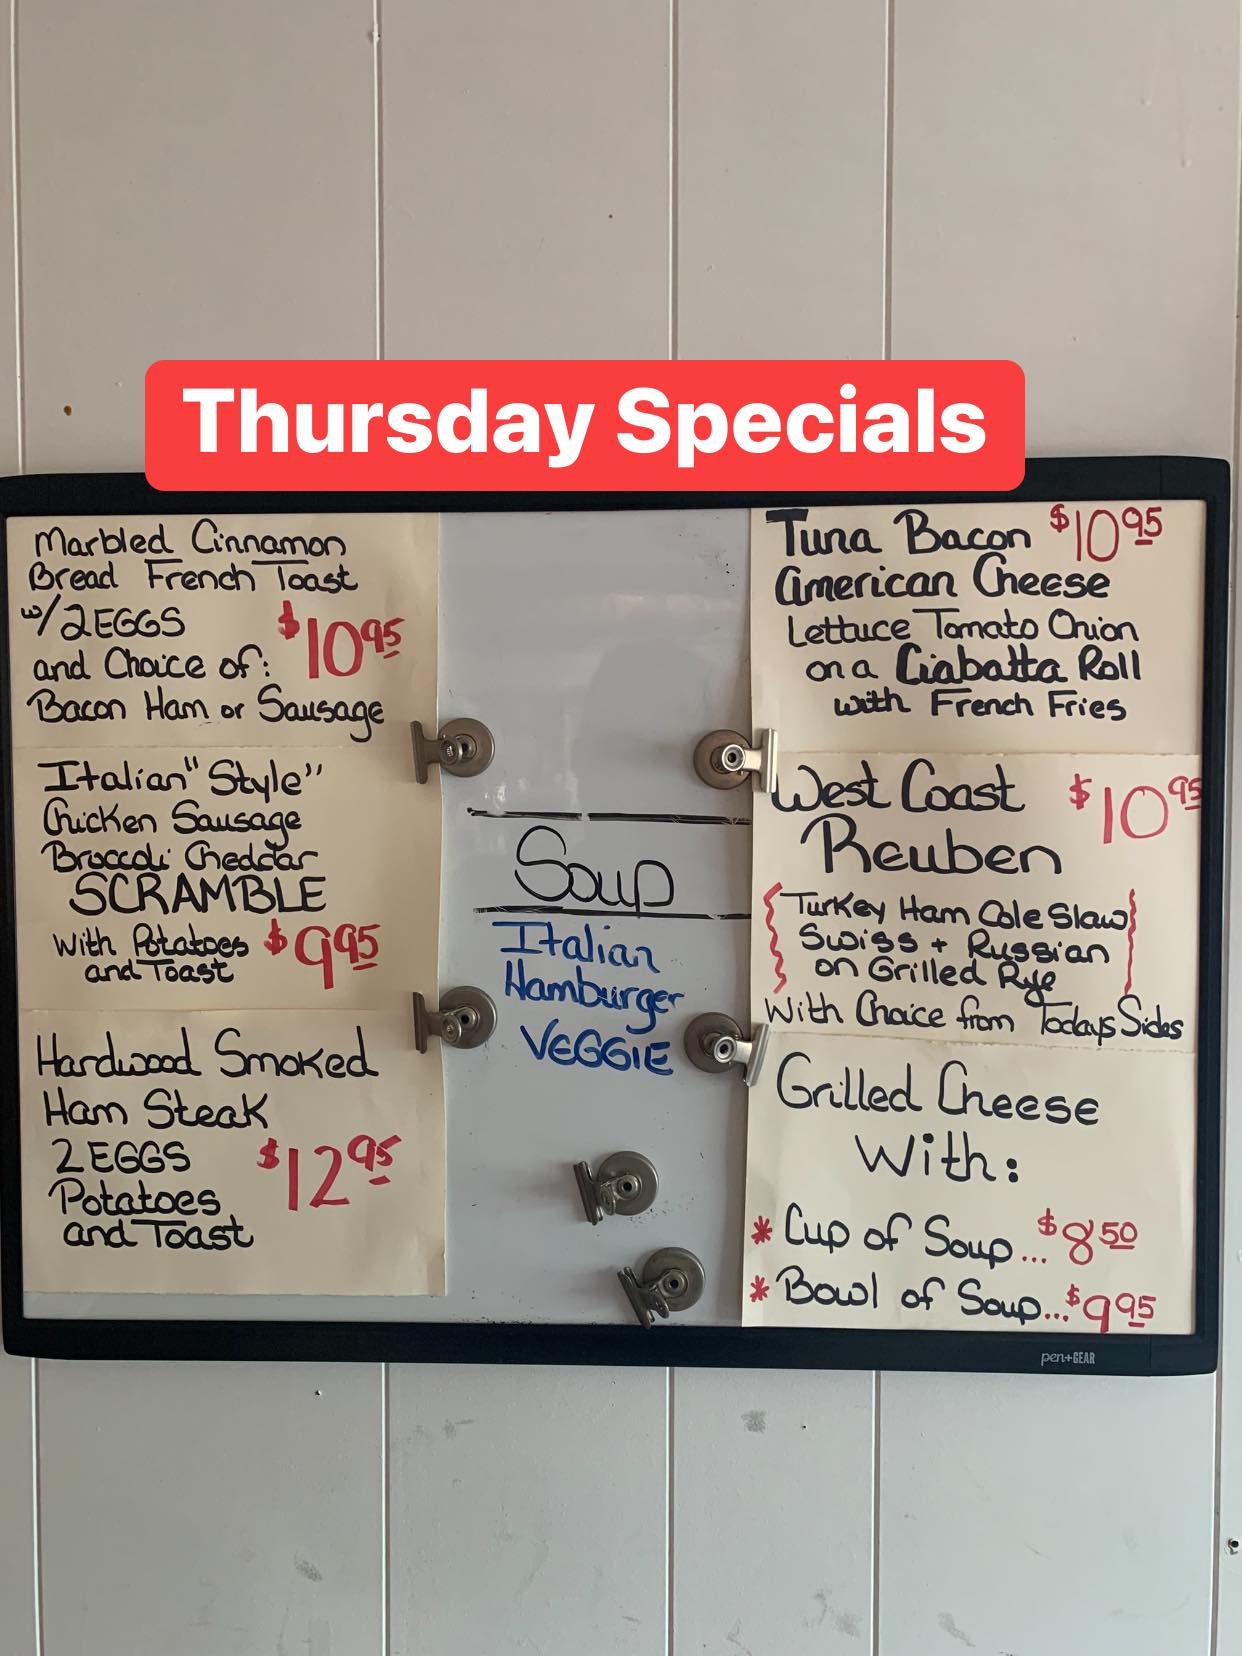 Thursday Specials
Marbled Cinnamon
Bread French Toast
w/2 EGGS
$10 95
and Choice of:
Bacon Ham or Sausage
Italian "Style"
Chicken Sausage
Broccoli Cheddar
SCRAMBLE
with Potatoes
and Toast
$9 95
Hardwood Smoked
Ham Steak
2 EGGS
$12 95
Potatoes
and Toast
Soup
Italian
Hamburger
VEGGIE
Tuna Bacon $10 95
American Cheese
Lettuce Tomato Onion
on a Ciabatta Roll
with French Fries
West Coast $10 95
Reuben
Turkey Ham Cole Slaw
Swiss + Russian
on Grilled Rye
With Choice from Todays Sides
Grilled Cheese
With:
* Cup of Soup... $8 50
* Bowl of Soup... $9 95
pen+GEAR